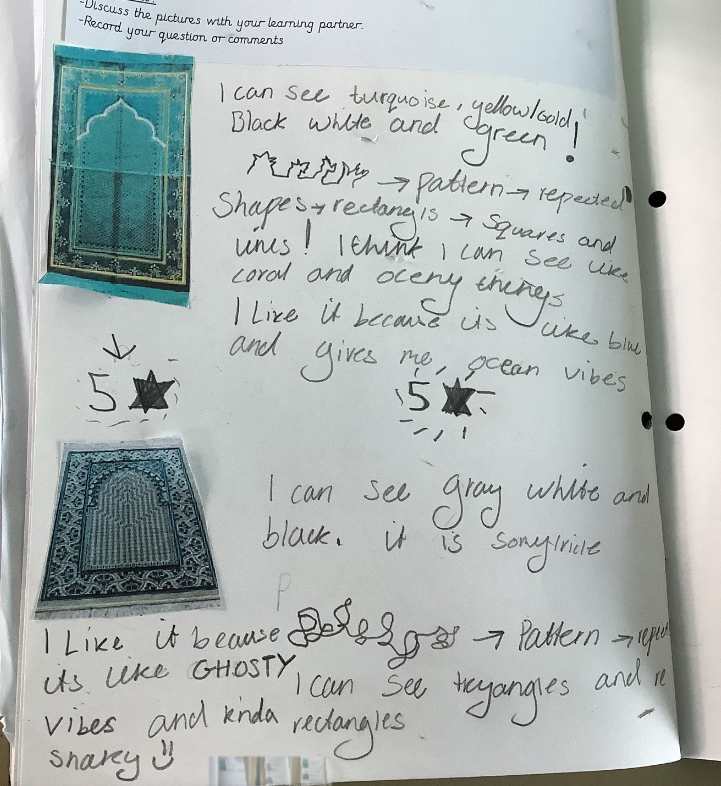 -Discuss the pictures with your learning partner.
-Record your question or comments
I can see turquoise, yellow/gold,
Black white and green!
→ pattern → repeated
Shapes → rectangls → squares and
lines! I think I can see like
coral and oceny things
I Like it because its like blue
and gives me, ocean vibes
5
5
I can see gray white and
black. it is somytricle
P
I Like it beause → Pattern → repeat
its like GHOSTY I can see tryangles and re
vibes and kinda rectangles
snakey